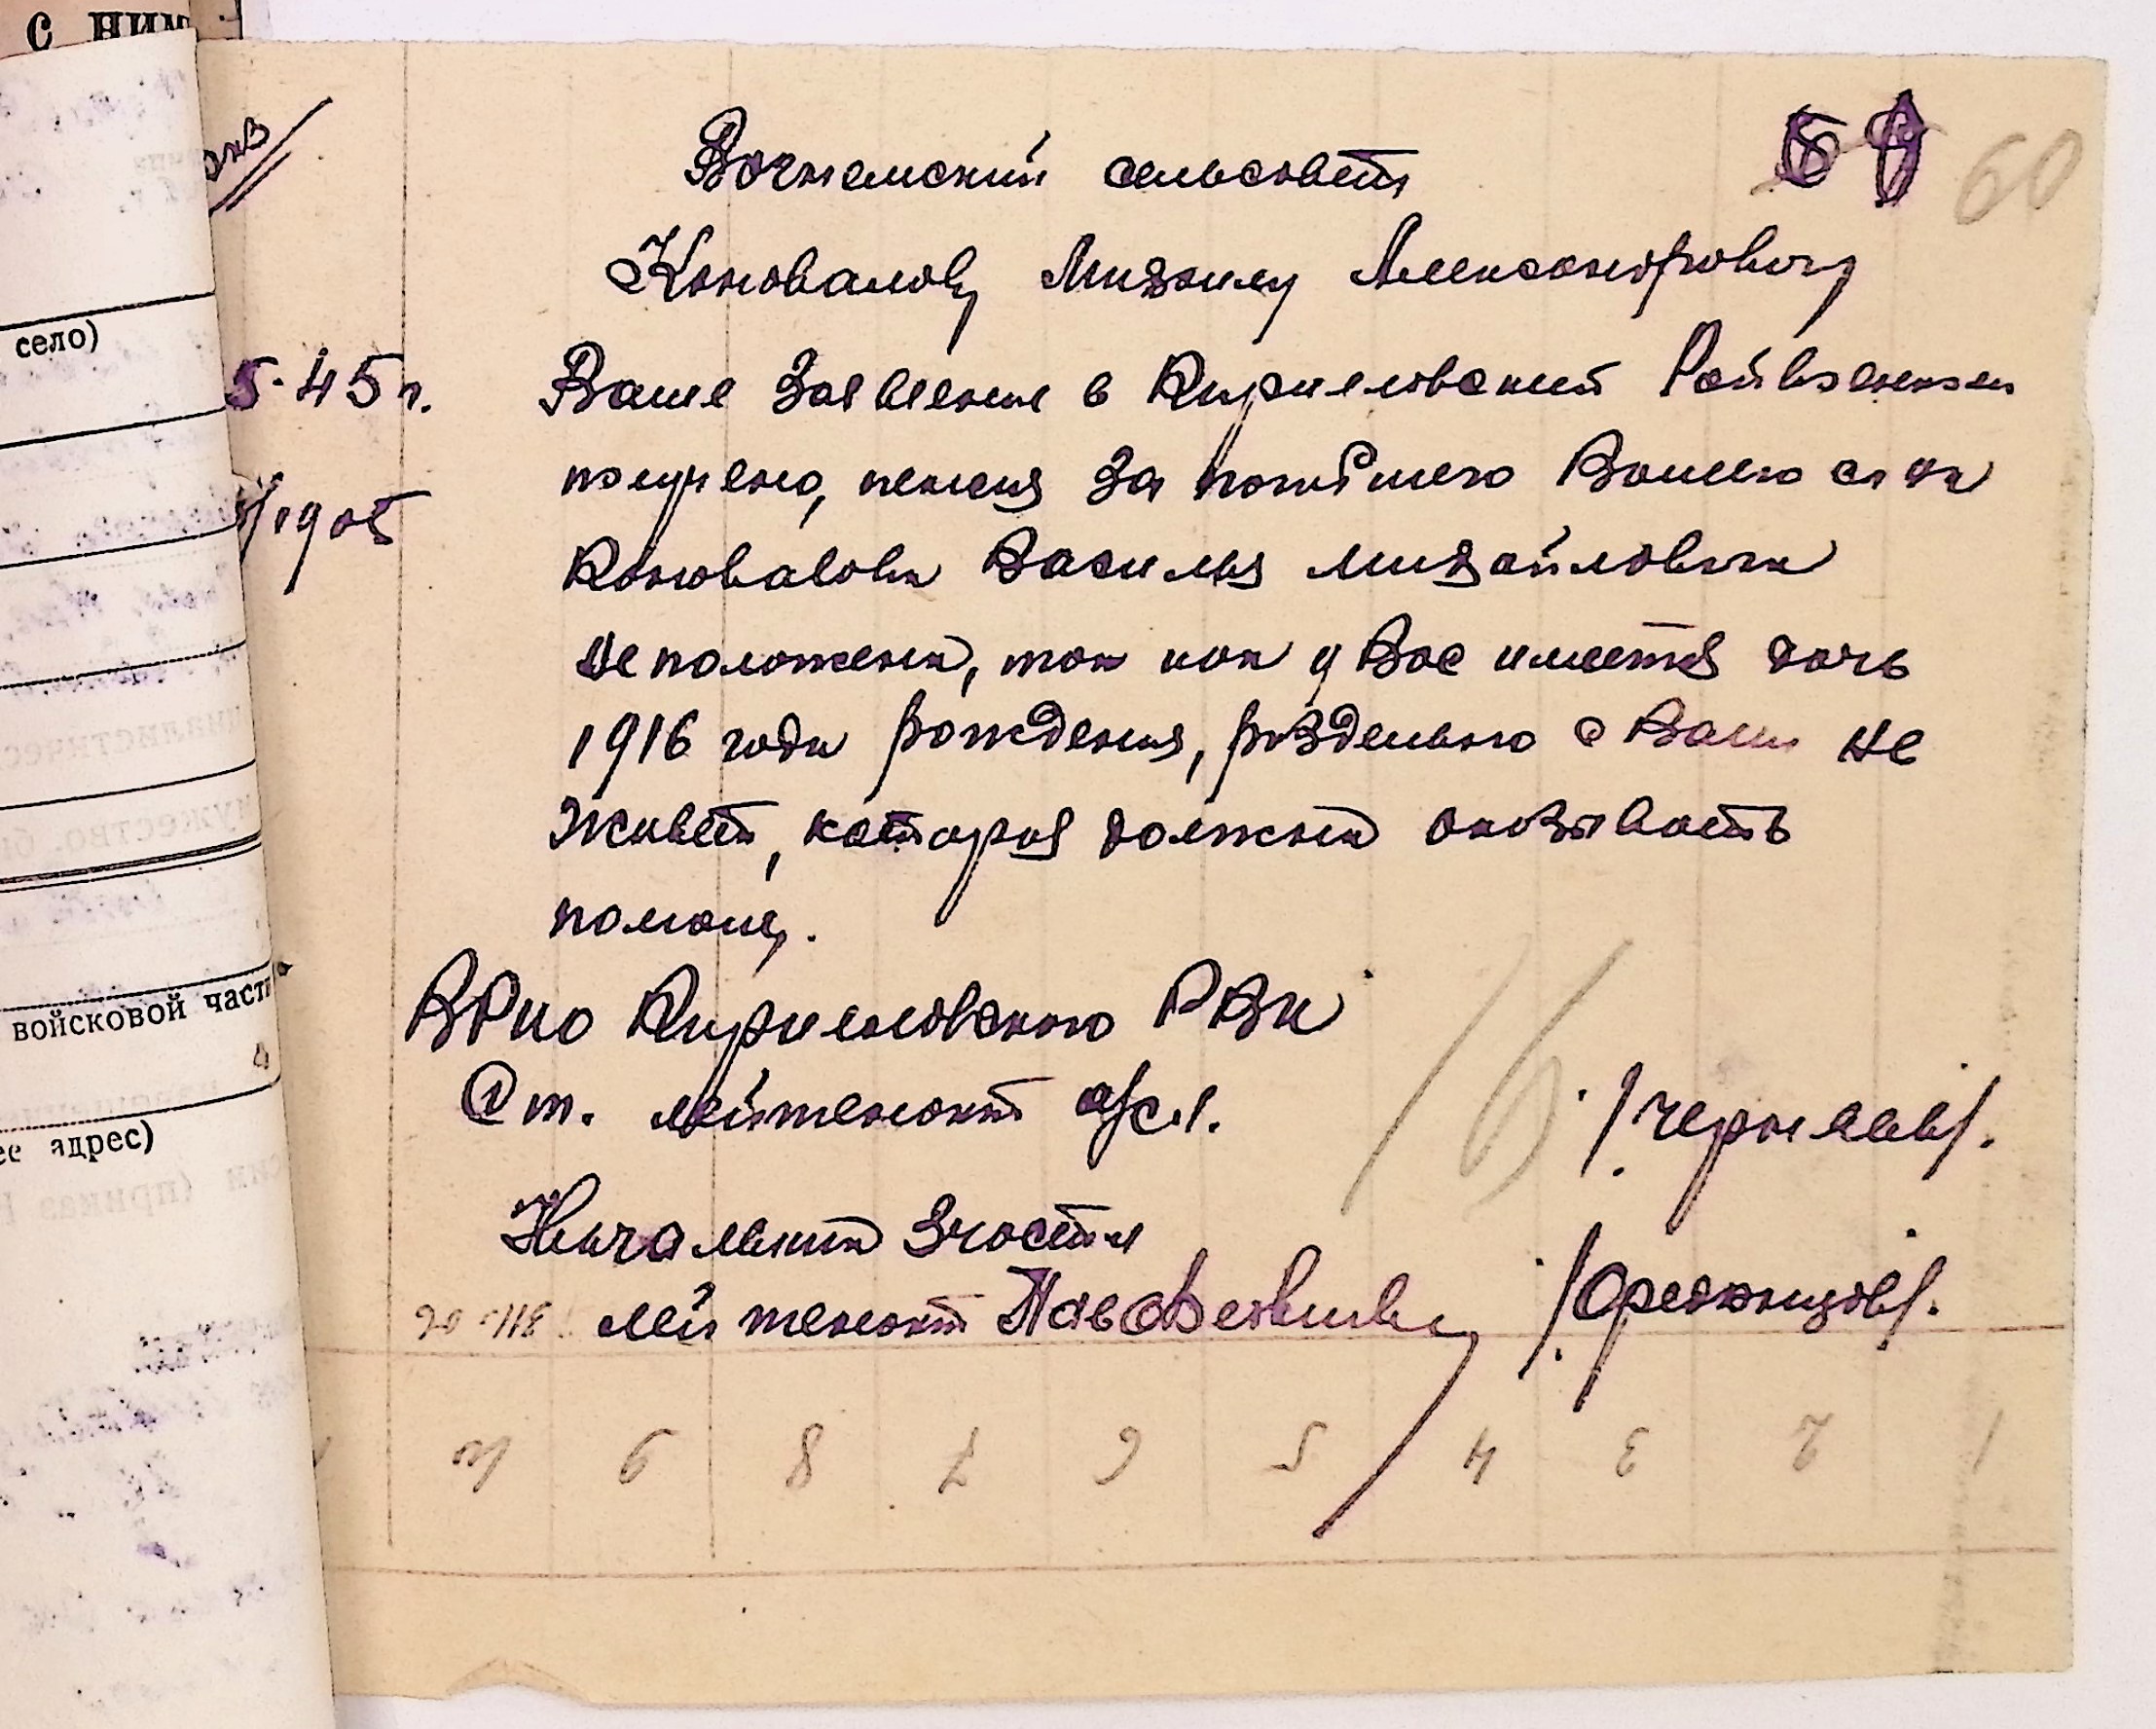 с ним
Вогнемский сельсовет
60
Коновалову Михаилу Александровичу
село)
5-45 г.
Ваше заявление в Кирилловский Райвоенком
получено, пенсия за погибшего Вашего сына
/1905
Коновалова Василия Михайловича
не положена, так как у Вас имеется дочь
1916 года рождения, раздельно с Вами не
живет, которая должна оказывать
помощь.
войсковой част
ВРио Кирилловского РВК
Ст. лейтенант а/сл.
/Черняев/.
адрес)
Начальник 3 части
лейтенант
10 9 8 7 6 5 4 3 2 1